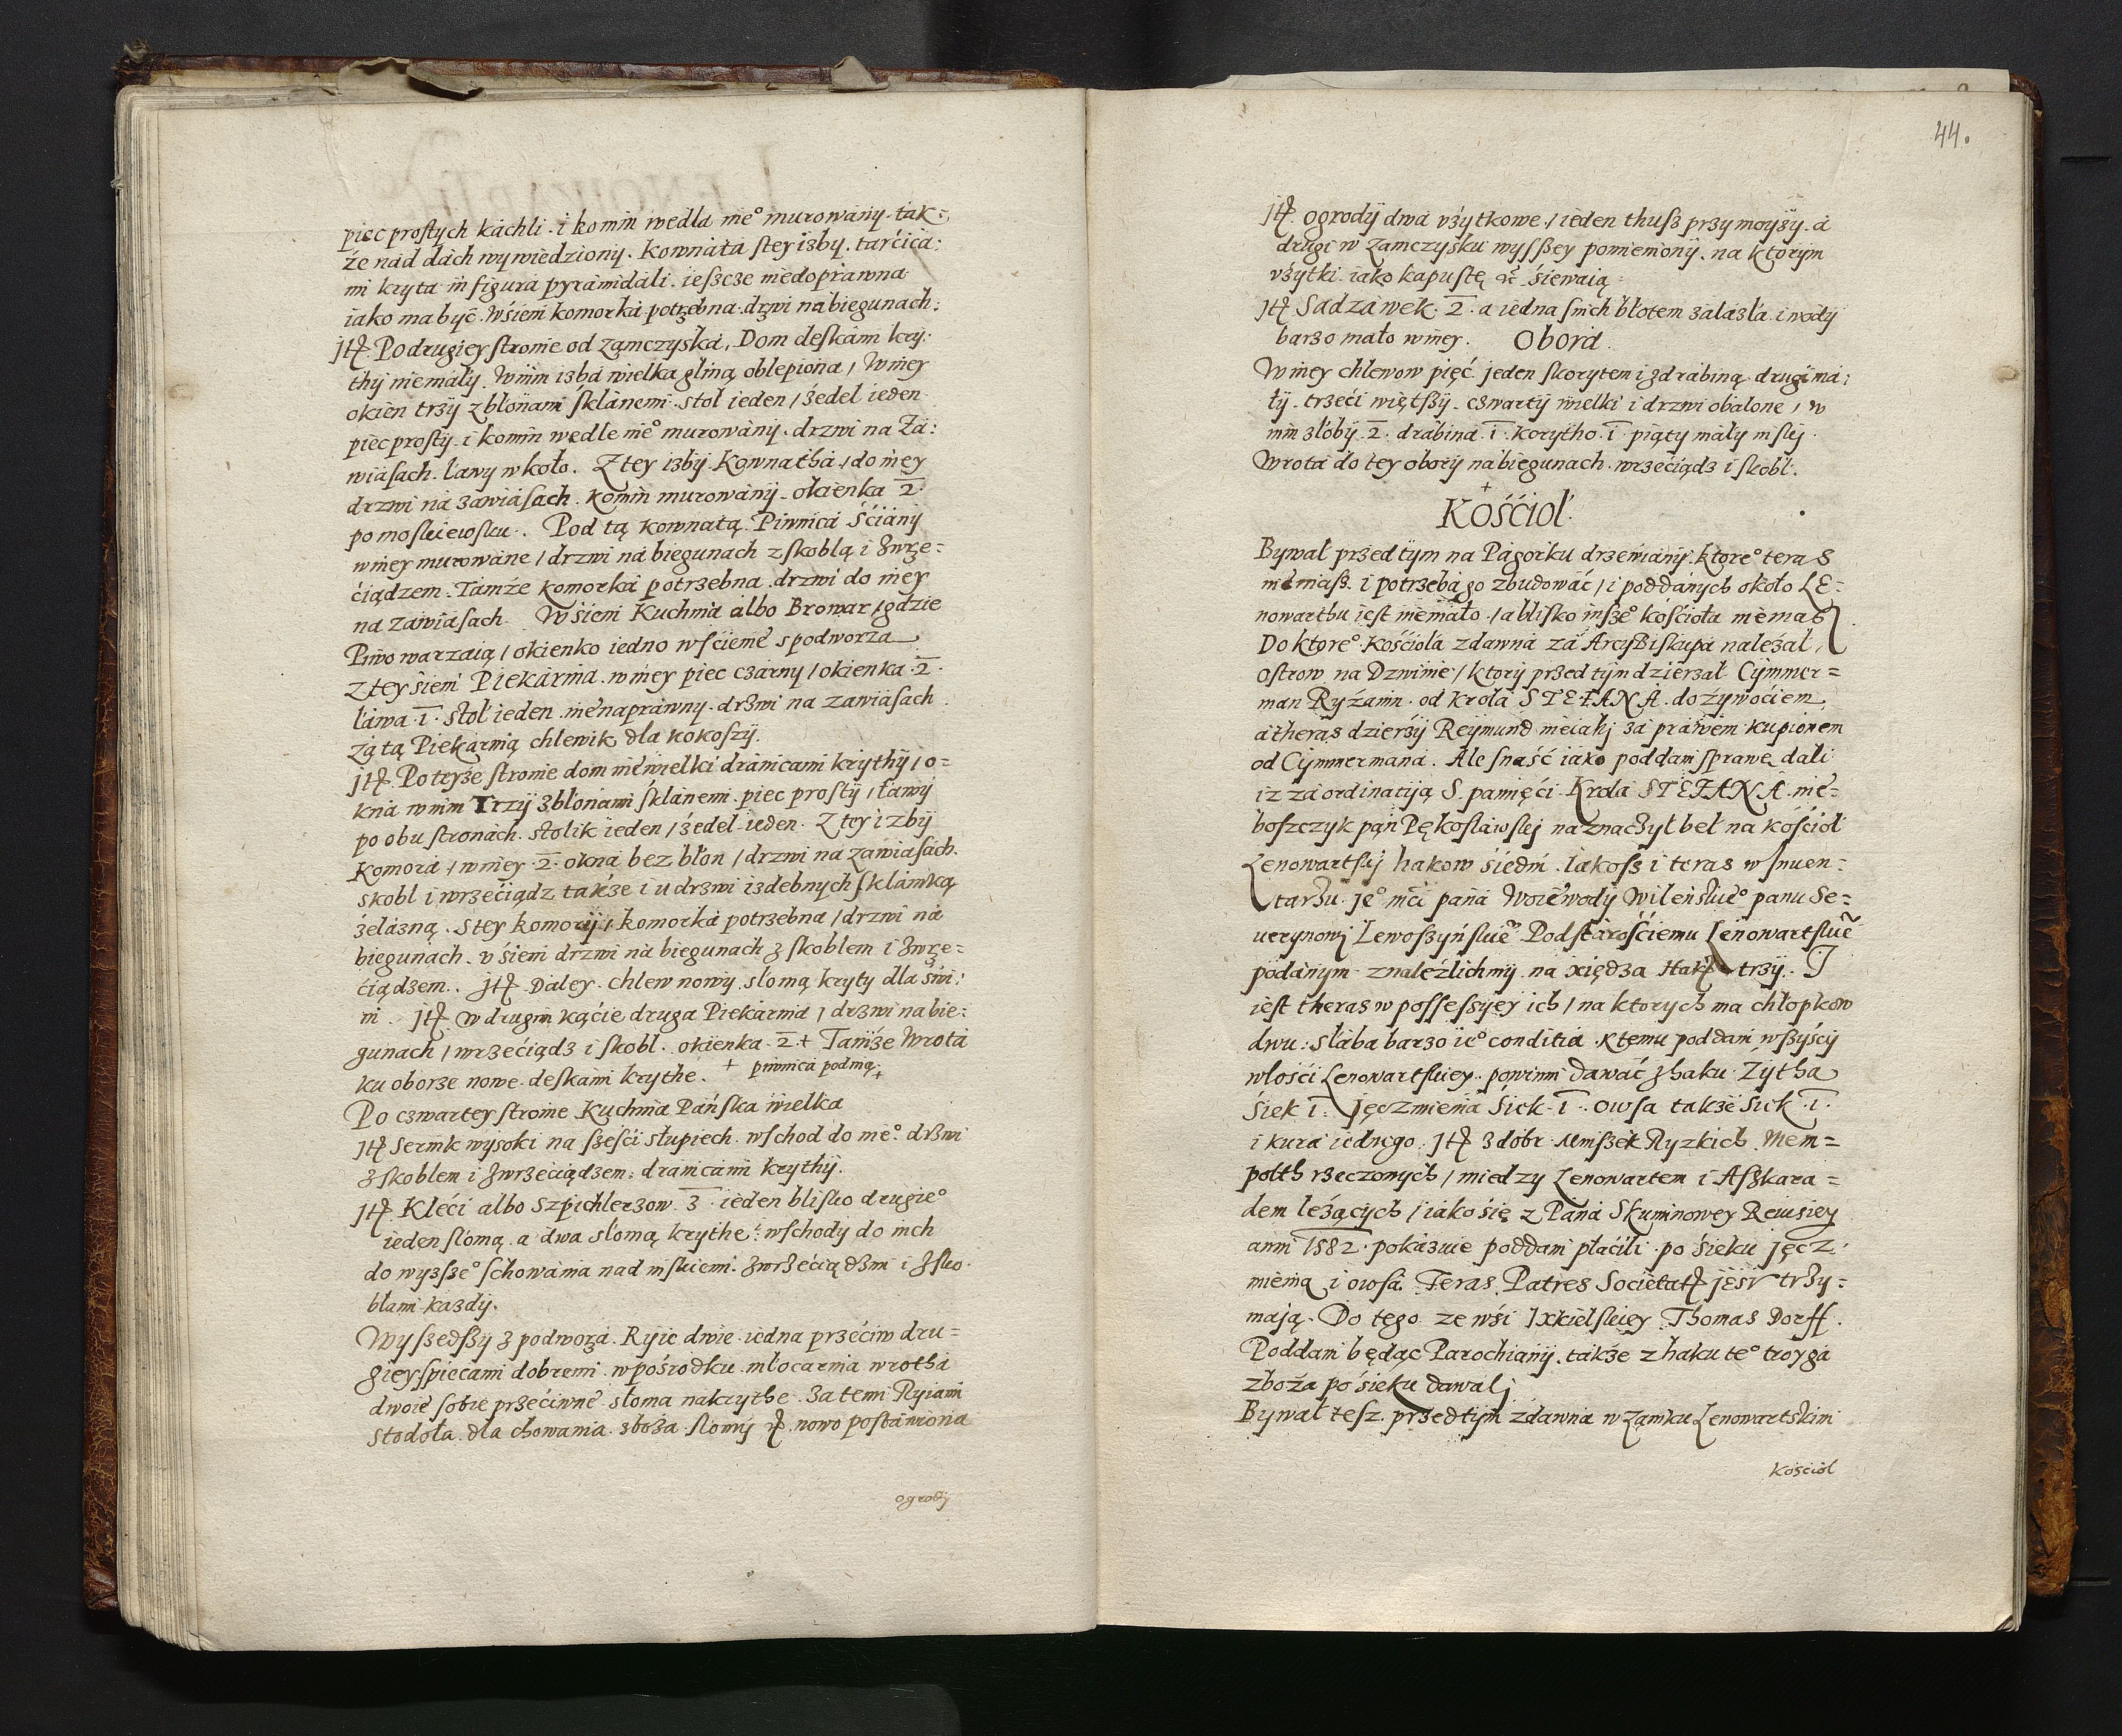 piec prostych káchli. i komin wedla nieº murowány. tak=
że nád dách wywiedziony. Kownáta s tey izby. tarćicá:
mi kryta in figura pyramidali. ieszcze niedopráwna
iáko ma być. W śieni komorká potrzebna. drzwi ná biegunach:
Jtꝭ. Po drugiey stronie od Zamczyská, Dom deskámi kry:
thy niemáły. W nim izbá wielka gliną oblepiona / W niey
okien trzy z błonami sklánemi. stoł ieden / zedel ieden
piec prosty. i komin wedle nieº murowány. drzwi na Zá:
wiásach. łáwy w koło. Z tey izby Kownathá / do niey
drzwi ná zawiásach. komin murowány. okienka 2.
po moskiewsku. Pod tą kownatą Piwnicá Śćiány
w niey murowáne / drzwi ná biegunach z skoblą i zwrze=
ćiądzem. Támże komorká potrzebna. drzwi do niey
na zawiásach. W śieni Kuchnia albo Browar / gdzie
Piwo warzaią / okienko iedno w sćiene s podworza
Z tey śieni Piekárnia. w niey piec czárny / okienka 2.
łáwa 1. stoł ieden nienapráwny. drzwi na zawiásach
zá tą Piekárnią chlewik dla kokoszy.
Jtꝭ Po teyże stronie dom niewielki dránicami krythy / o=
kna w nim Trzy z błonami sklánemi. piec prosty / łáwy
po obu stronach. stolik ieden / zedel ieden. Z tey izby
Komorá / w niey 2. okná bez błon / drzwi ná zawiásach.
skobl i wrzećiądz także i u drzwi izdebnych s klámką
zelázną. S tey komory / komorká potrzebna / drzwi ná
biegunach. v śieni drzwi ná biegunach z skoblem i zwrze=
ćiądzem. Jtꝭ Daley. chlew nowy. słomą kryty dla świ:
ni. Jtꝭ w drugim kąćie druga Piekárnia / drzwi na bie:
gunach / wrzećiądz i skobl. okienka 2 + Támże Wrotá
ku oborze nowe. deskámi krythe. + piwnica pod nią +
Po czwartey stronie Kuchnia Páńska wielka
Jtꝭ Sernik wysoki na szesci słupiech. wschod do nieº. drzwi
z skoblem i zwrzeciądzem. dranicami krythy.
Jtꝭ Klećí albo Szpichlerzow 3 ieden blisko drugieº
ieden słomą a dwa słomą krythe. wschody do nich
do wyzszeº schowánia nad niskiemi. zwrzećiądzmi i z sko
błami kazdy.
Wyszedszy z podworza. Ryie dwie iedna przećiw dru=
giey s piecami dobremi. w pośrodku młocarnia wrothá
dwoie sobie przećiwne słoma nakrythe. Za temi Ryiami
stodoła. dla chowania zboża słomy ꝛc. nowo postáwiona
ogrody
44.
Jtꝭ ogrody dwá vżytkowe / ieden thusz przy moyzy. á
drugi w Zamczysku wysszey pomieniony. na ktorym
vżytki iako kapustę ꝛc śiewaią
Jtꝭ Sadzáwek 2. a iedna s nich błotem zalázła i wody
barzo máło w niey. Oborá
W niey chlewow pięć. jeden s korytem i z drabiną. drugi má:
ły. trzeći więtszy. czwarty wielki i drzwi obálone / w
nim złoby 2. drábina 1. korytho 1. piąty mały niski.
Wrotá do tey obory ná biegunach. wrzećiądz i skobl.
+
Kośćioł.
Bywał przed tym na Págorku drzewiány. ktoreº teras
nie masz. i potrzebá go zbudowáć / i poddánych około LE=
nowarthu iest niemáło. / á blisko inszeº kośćioła nie masz.
Do ktoreº kośćioła zdawná zá ArcyBiskupá należał
ostrow na Dzwinie / ktory przed tym dzierzał Cymmer=
man Ryżánin od Krolá STEFANA. dożywoćiem
á theras dzierży Reymund nieiáki zá práwem kupionem
od Cymmermána. Ale snaść iáko poddáni spráwę dali
iz zá ordinatią S. pamięći Krolá STEFANA nie=
boszczyk pan Pękosławski náznáczył beł na kośćioł
Lenowartski hakow śiedḿ. Iákosz i teras w Inuen=
tarzu. jeº mći páná Woiewody Wileńskieº panu Se=
uerynowi Lewoszyńskie~ Podstárośćiemu Lenowartskie~
podánym. ználeźlichmy. na xiędza Hakꝭ trzy. I
iest theras w possessyey ich / na ktorych ma chłopkow
dwu: słába bárzo ieº conditia. K temu poddáni wszyśćy
włośći Lenowartskiey. powinni dawáć z haku Żythá
Śiek 1. Jęczmieniá Śiek 1. owsa także śiek 1.
i kurá iednego. Jtꝭ z dobr Mniszek Ryzkich Mem=
polth rzeczonych / miedzy Lenowartem i Aszkara=
dem leżących / iáko się z Páná Skuminowey Reuisiey
anni 1582. pokázuie poddáni płaćili po śieku jęcz
mieniá i owsa. Teras Patres Societatꝭ jesu trzy=
mają. Do tego ze wśi Ixkielskiey Thomas Dorff.
Poddáni będąc Parochiány. także z haku teº troyga
zboża po śieku dawali
Bywał tesz. przed tym zdawná w Zamku Lenowartskim
kościoł